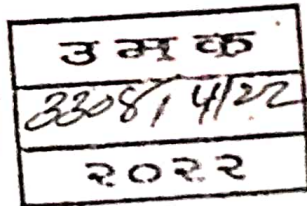 उ म क
3308/4/22
२०२२